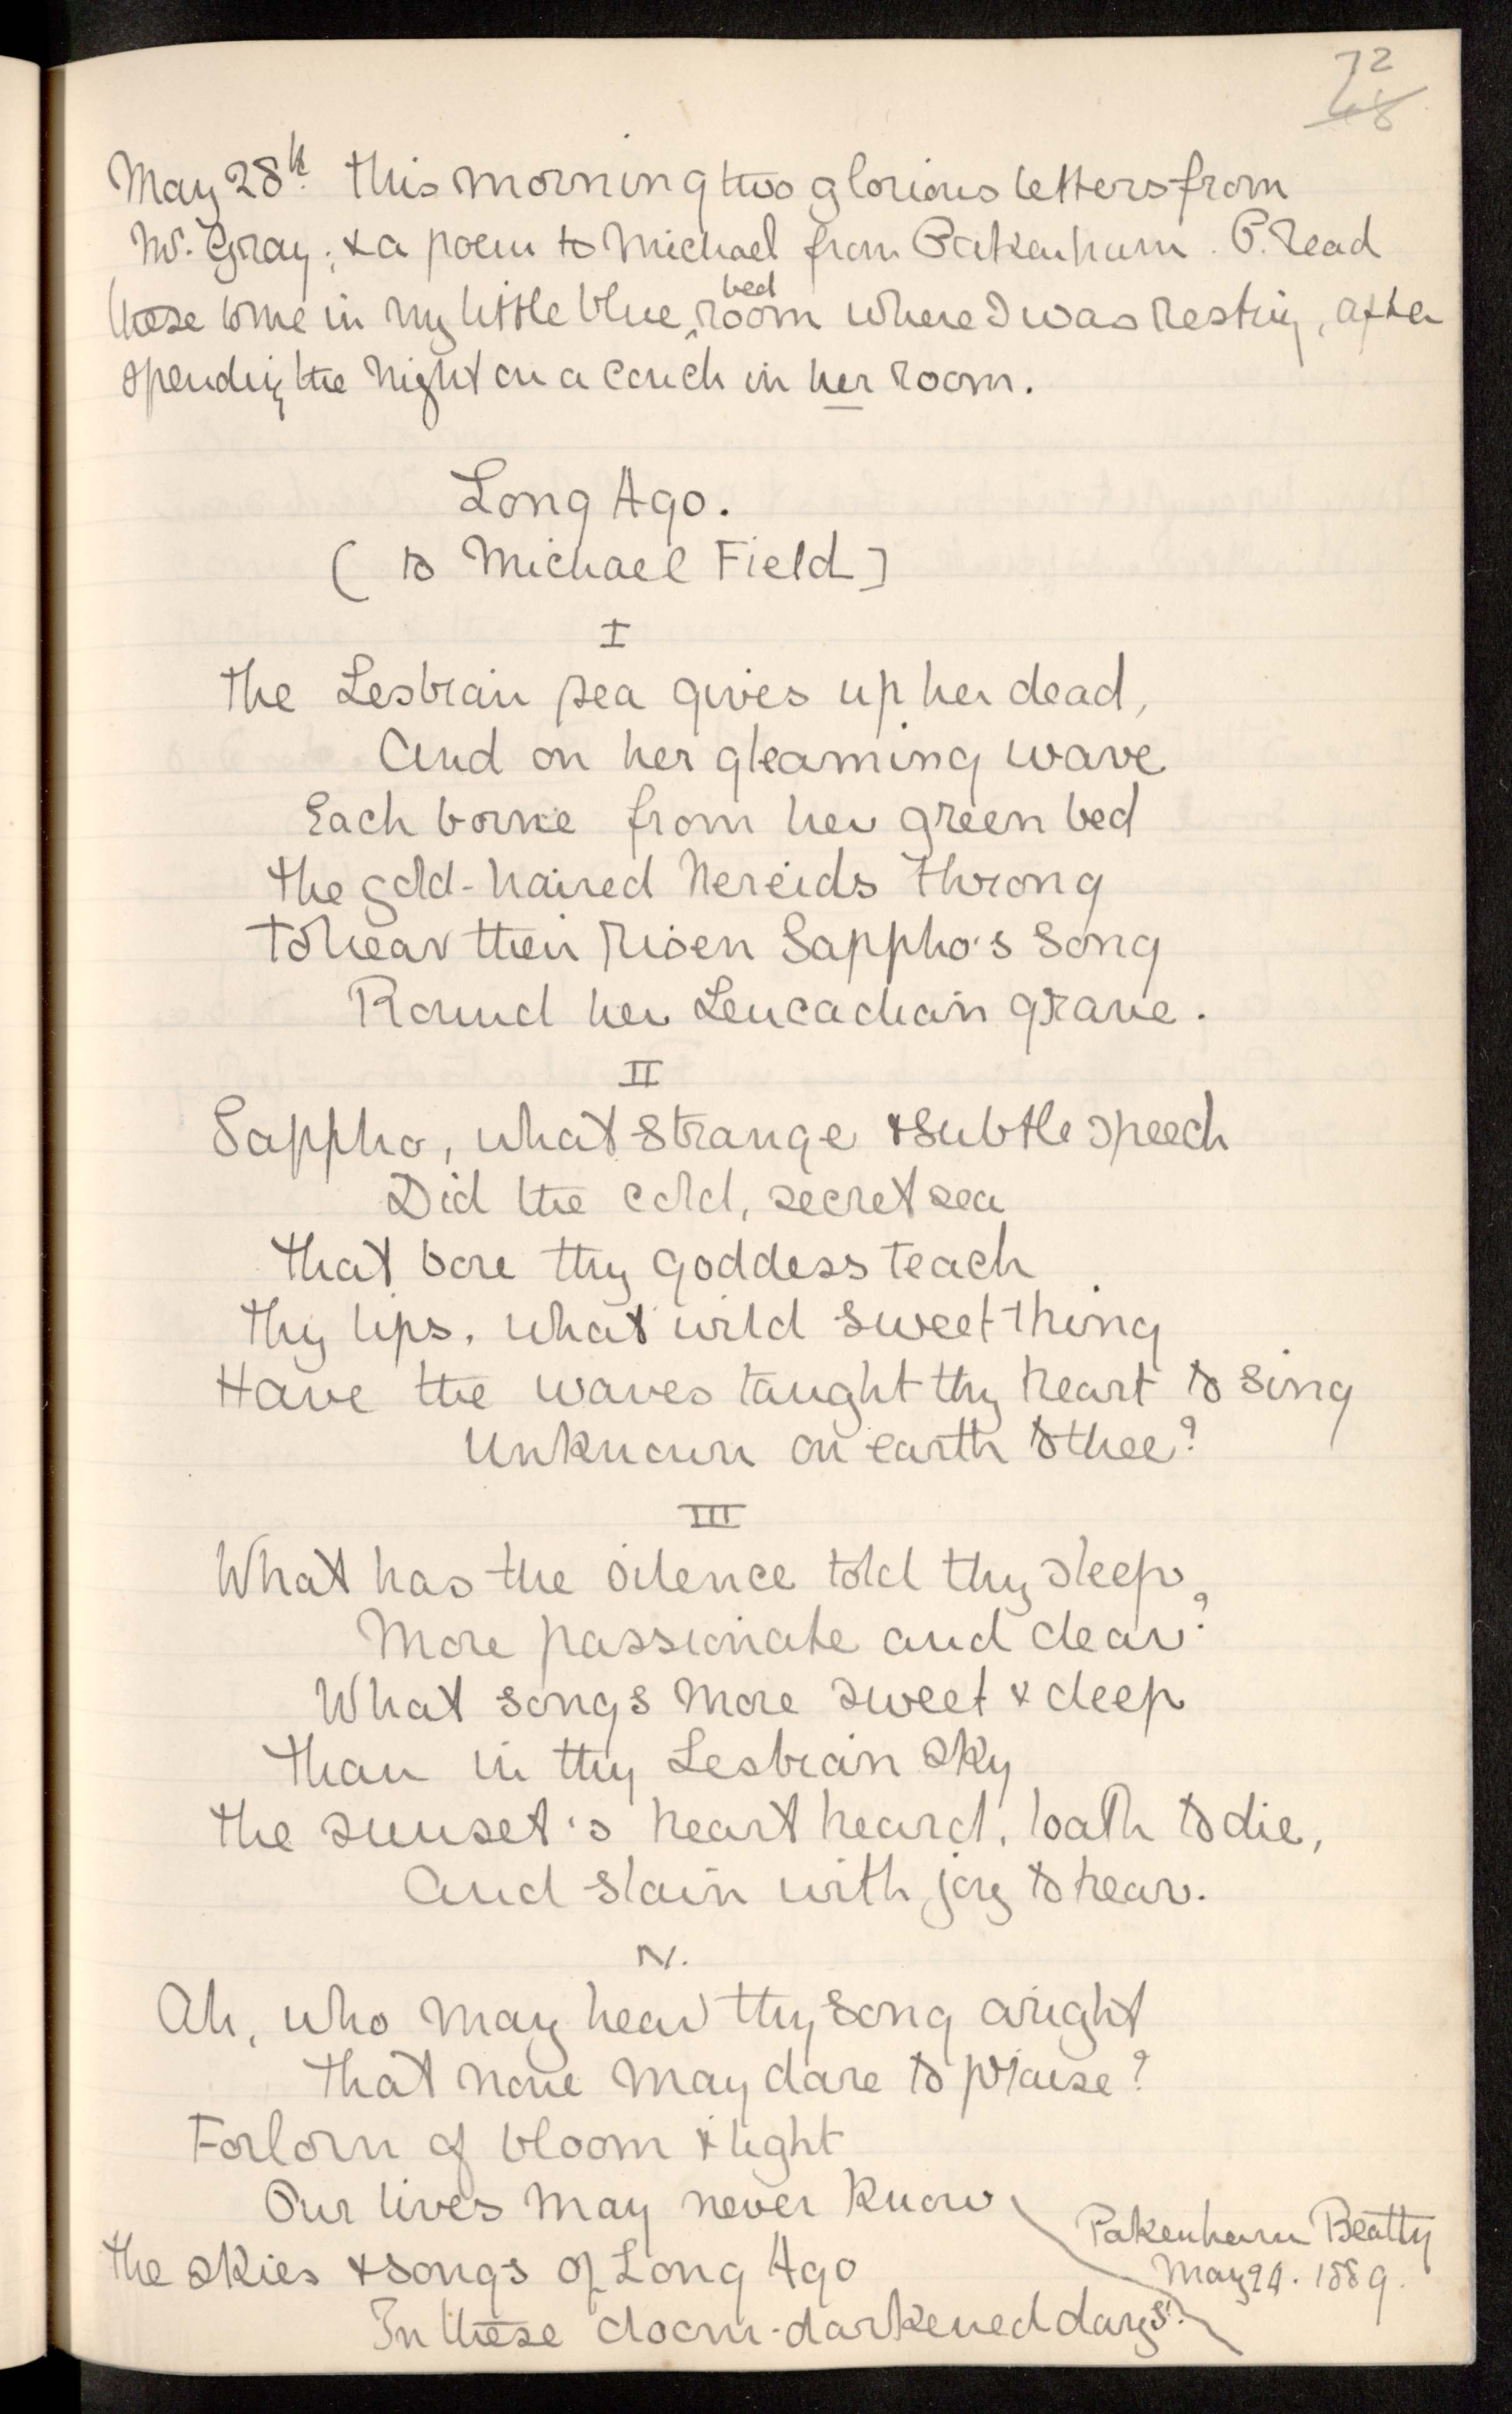 72
68
May 28th. This morning two glorious letters from
Mr. Gray; & a poem to Michael from Pakenham. P. read
these to me in my little blue ^bed room where I was resting, after
spending the night on a couch in her room.
Long Ago.
( to Michael Field]
I
The Lesbian sea gives up her dead,
And on her gleaming wave
Each borne from her green bed
The gold-haired Nereids throng
To hear their risen Sappho's song
Round her Leucadian grave.
II
Sappho, what strange & subtle speech
Did the cold, secret sea
That bore thy goddess teach
Thy lips, what wild sweet thing
Have the waves taught thy heart to sing
Unknown on earth to thee?
III
What has the silence told thy sleep
More passionate and dear?
What songs more sweet & deep
Than in thy Lesbian sky
The sunset's heart heard, loath to die,
And slain with joy to hear.
IV.
Ah, who may hear thy song aright
That none may dare to praise?
Forlorn of bloom & light
Our lives may never know
The skies & songs of Long Ago
In these doom-darkened days!
Pakenham Beatty
May 24. 1889.